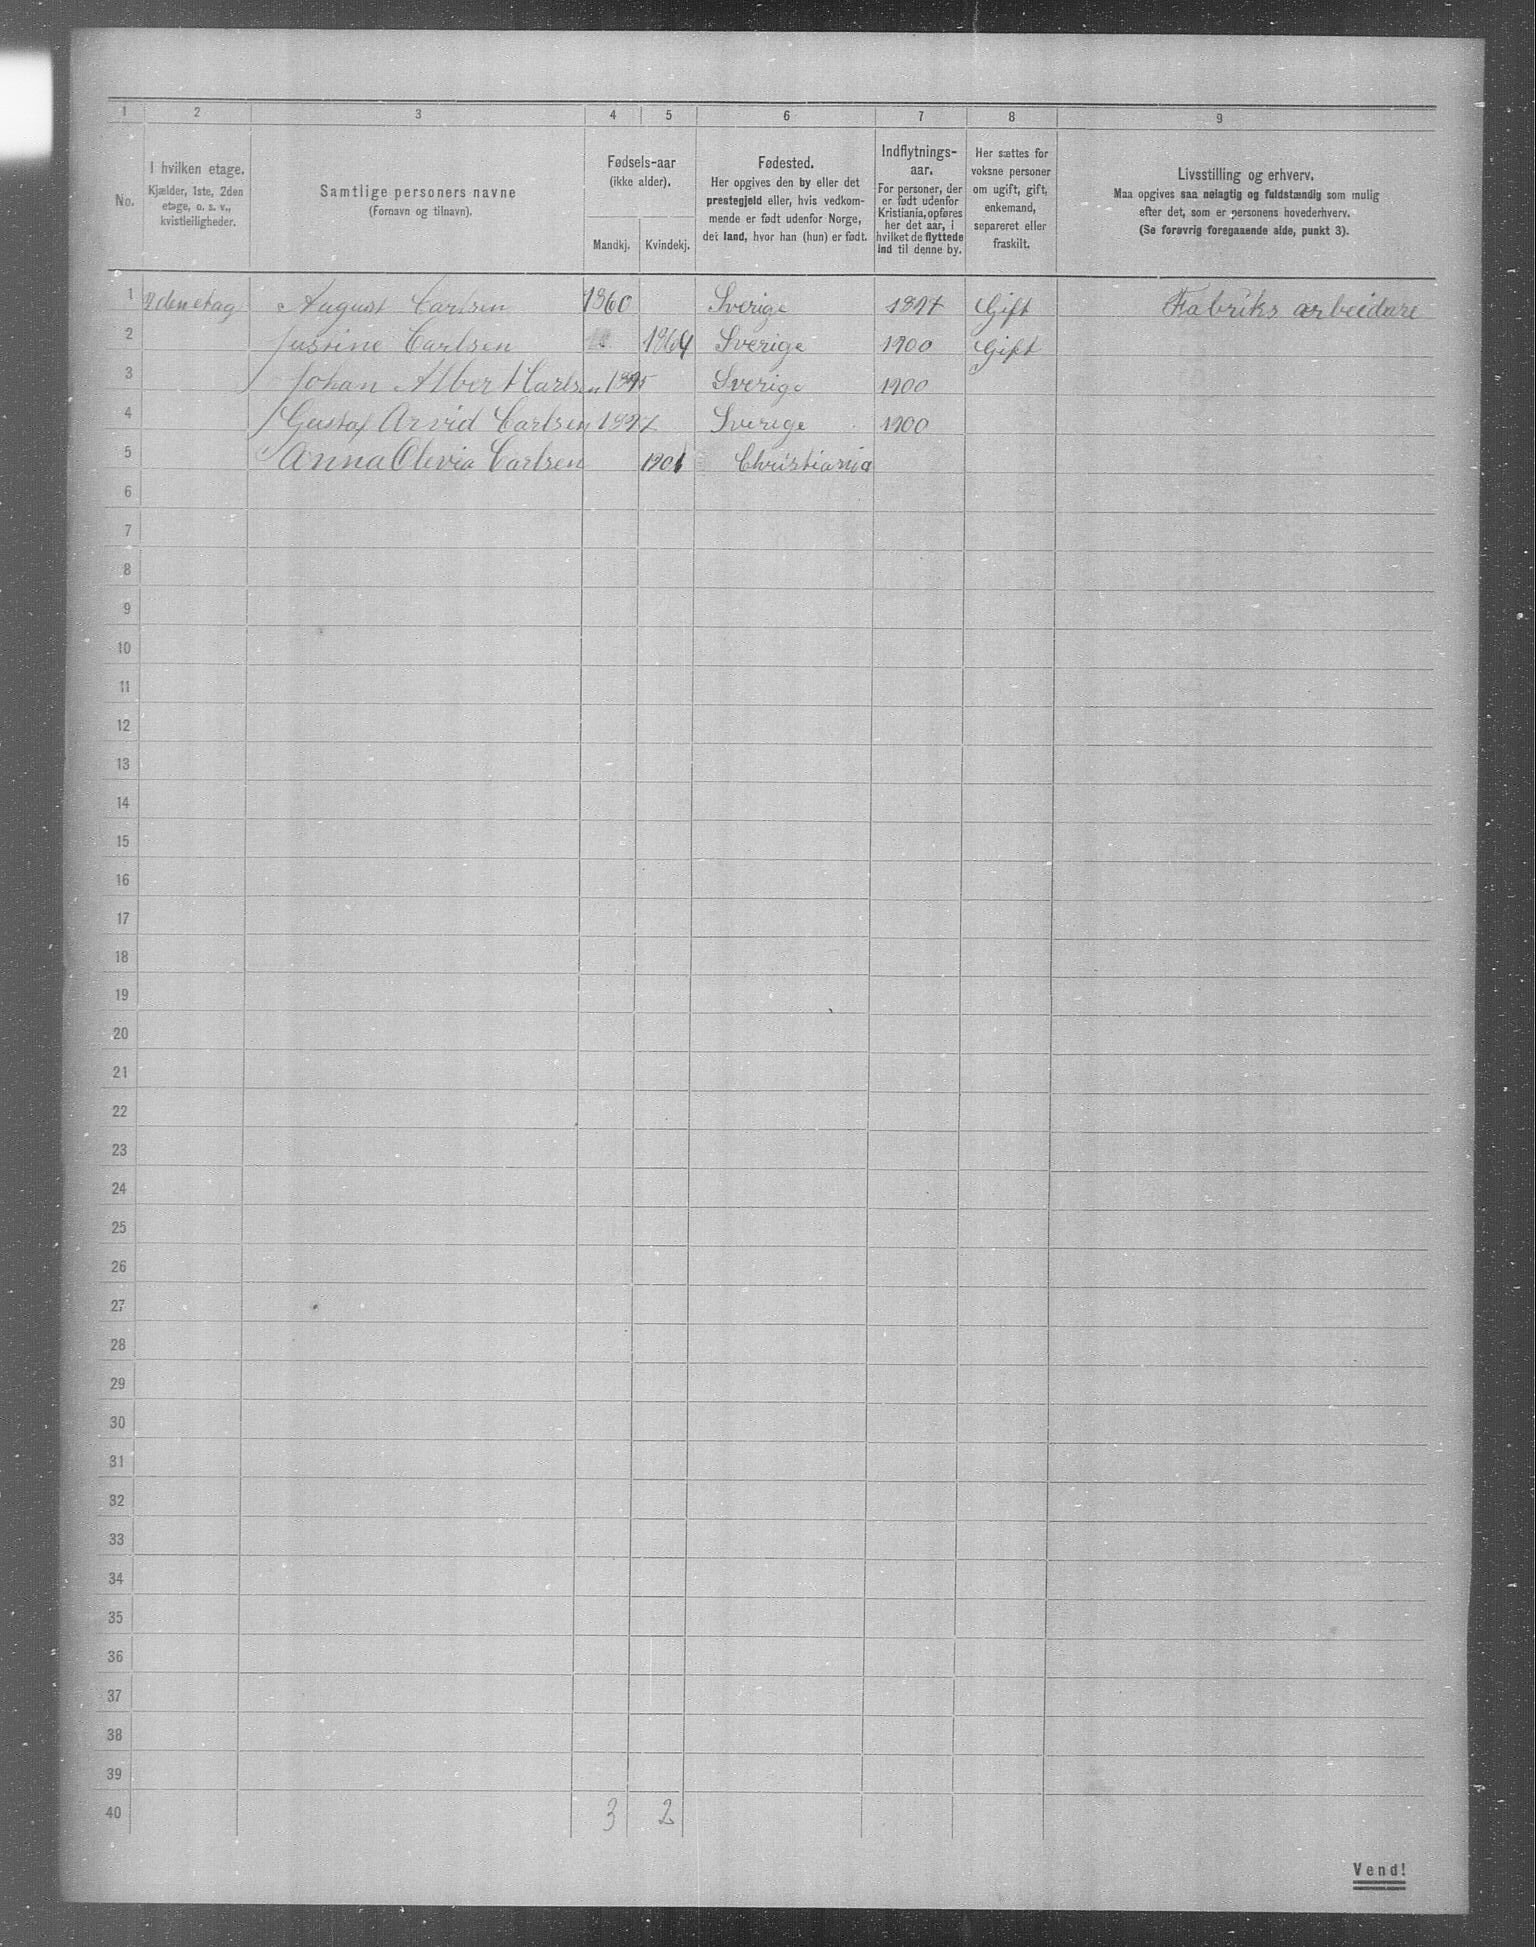 1 2 3 4 5 6 7 8 9
No.
I hvilken etage.
Kjælder, 1ste, 2den
etage, o. s. v.,
kvistleiligheder.
Samtlige personers navne
(Fornavn og tilnavn).
Fødsels-aar
(ikke alder).
Mandkj. Kvindekj.
Fødested.
Her opgives den by eller det
prestegjeld eller, hvis vedkom-
mende er født udenfor Norge,
det land, hvor han (hun) er født.
Indflytnings-
aar.
For personer, der
er født udenfor
Kristiania, opføres
her det aar, i
hvilket de flyttede
ind til denne by.
Her sættes for
voksne personer
om ugift, gift,
enkemand,
separeret eller
fraskilt.
Livsstilling og erhverv.
Maa opgives saa nøiagtig og fuldstændig som mulig
efter det, som er personens hovederhverv.
(Se forøvrig foregaaende side, punkt 3).
1 2denetag August Carlsen 1860 Sverige 1897 Gift Fabriks arbeidare
2 Justine Carlsen 1864 Sverige 1900 Gift
3 Johan Albert Carlsen 1895 Sverige 1900
4 Gustaf Arvid Carlsen 1897 Sverige 1900
5 Anna Olevia Carlsen 1901 Christiania
6
7
8
9
10
11
12
13
14
15
16
17
18
19
20
21
22
23
24
25
26
27
28
29
30
31
32
33
34
35
36
37
38
39
40 3 2
Vend!